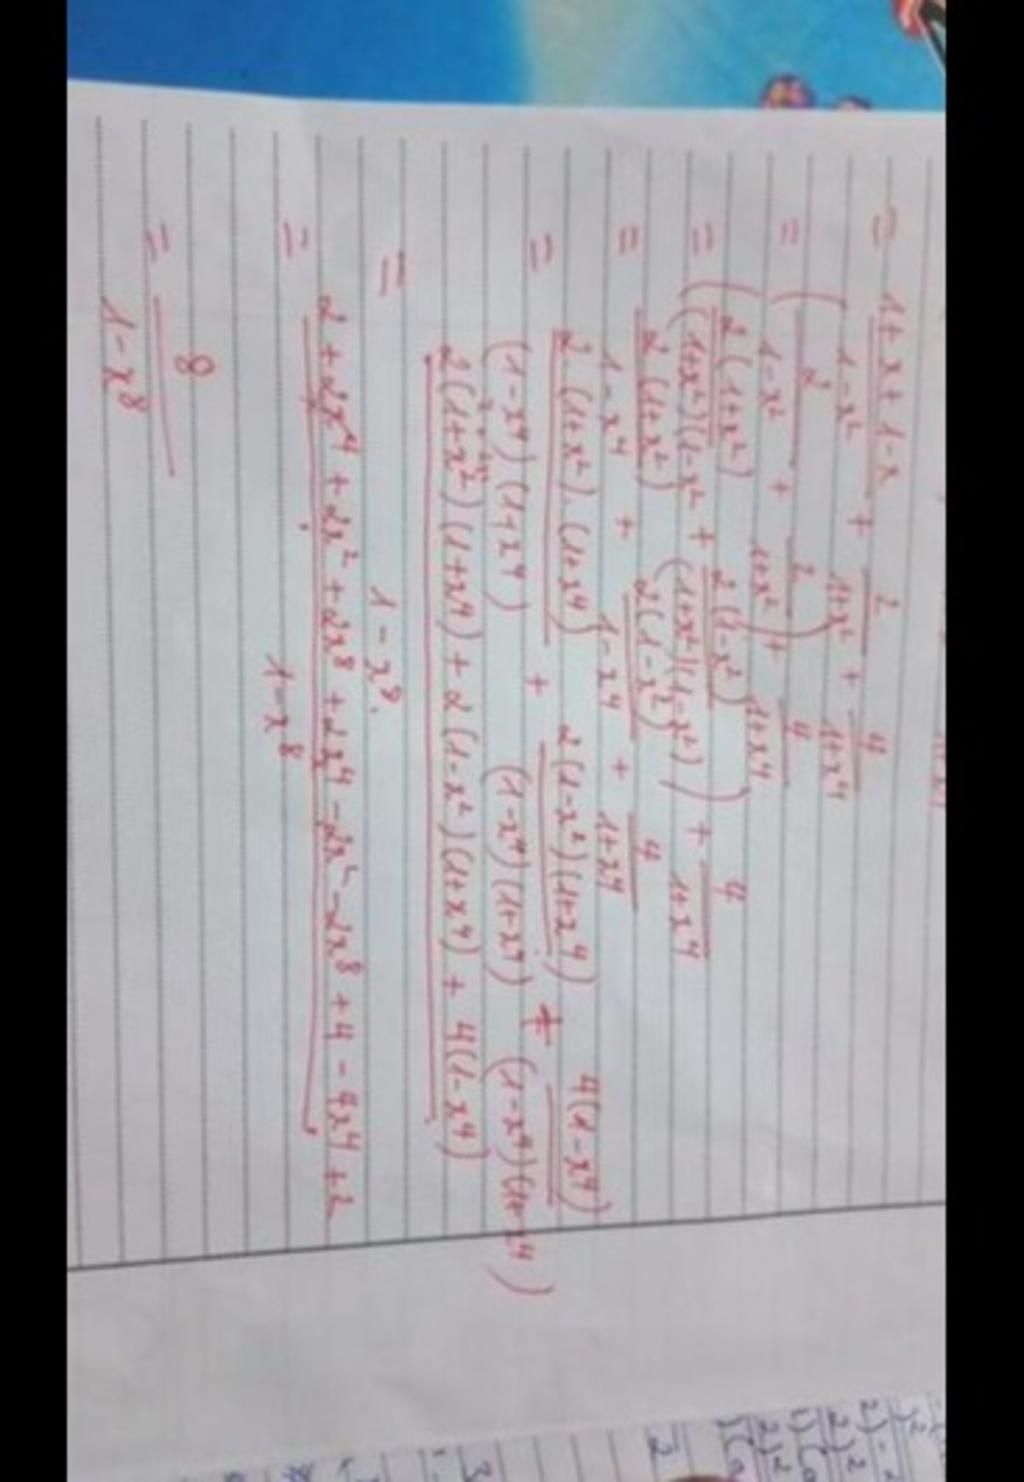 = (1+x+1-x)/(1-x²) + 2/(1+x²) + 4/(1+x⁴)
= (2/(1-x²) + 2/(1+x²)) + 4/(1+x⁴)
= (2(1+x²)/((1+x²)(1-x²) + 2(1-x²)/((1+x²)(1-x²))) + 4/(1+x⁴)
= 2(1+x²)/(1-x⁴) + 2(1-x²)/(1-x⁴) + 4/(1+x⁴)
= 2.(1+x²).(1+x⁴)/((1-x⁴)(1+x⁴)) + 2(1-x²)(1+x⁴)/((1-x⁴)(1+x⁴)) + 4(1-x⁴)/((1-x⁴)(1+x⁴))
= (2(1+x²)(1+x⁴) + 2(1-x²)(1+x⁴) + 4(1-x⁴))/(1-x⁸)
= (2+2x⁴+2x²+2x⁸+2x⁴-2x²-2x⁸+4-4x⁴+2)/(1-x⁸)
= 8/(1-x⁸)